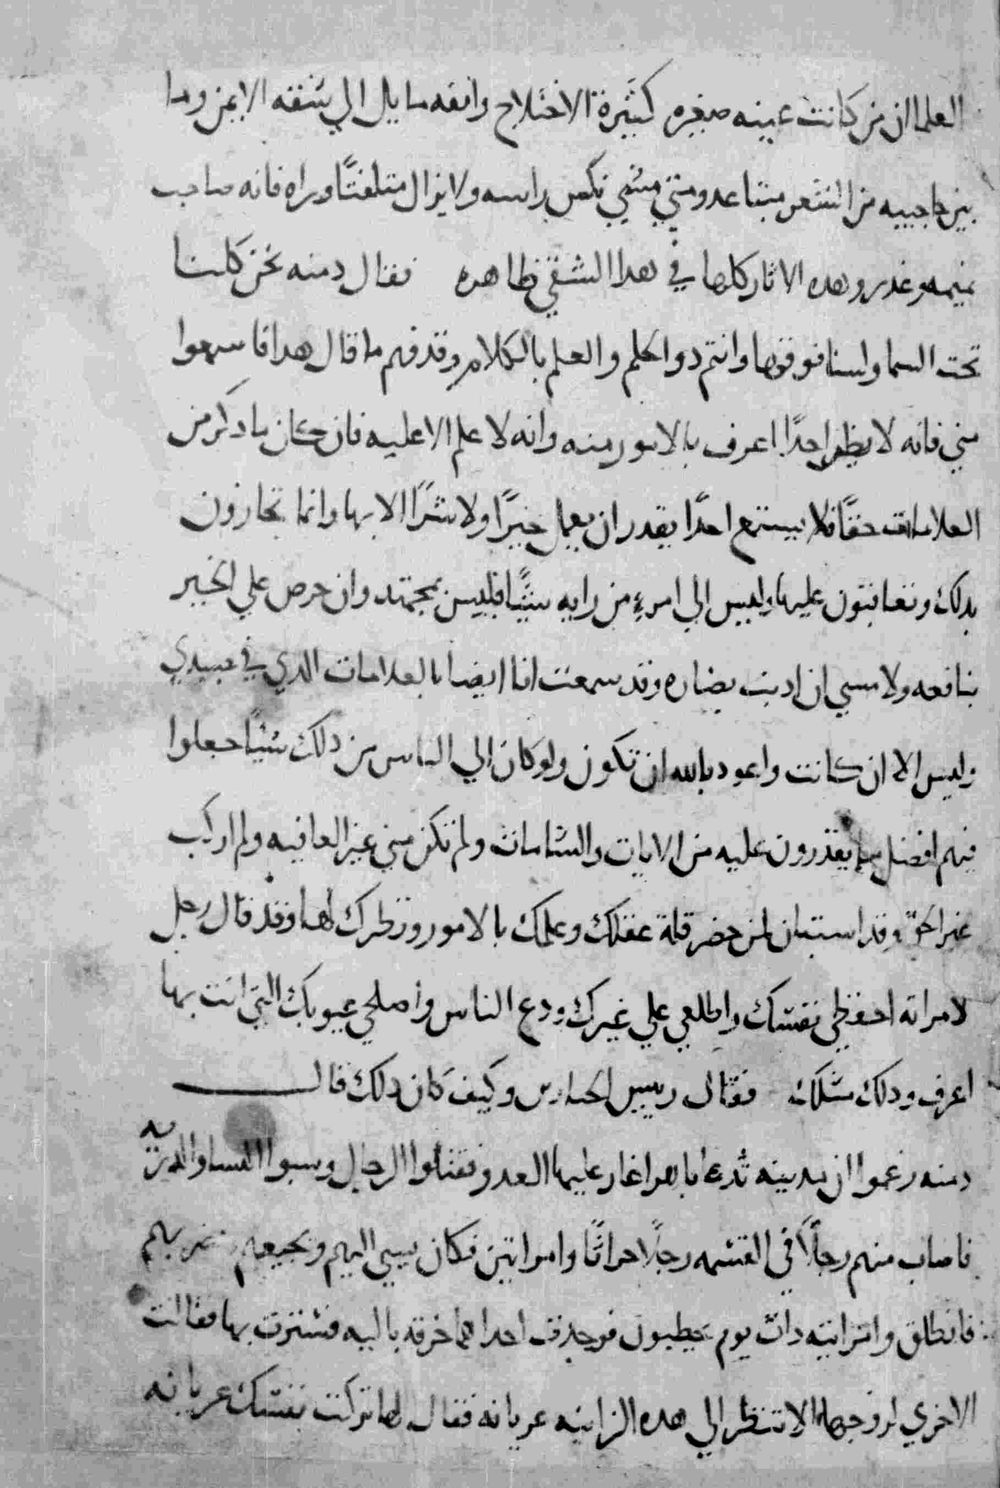 العلما ان من كانت عينه صغيره كثيرة الاختلاج وانفه مايل الي شقه الايمن وما
بين حاجبيه من الشعر متباعد ومتي مشي نكس براسه ولا يزال متلفتًا وراه فانه صاحب
نميمه وغدر وهده الاثار كلها في هدا الشقي ظاهره فقال دمنه نحن كلنا
تحت السما ولسنا فوقها وانتم دوا الحلم والعلم بالكلام وقد فهم ما قال هدا فاسمعوا
مني فانه لا يظن احدًا اعرف بالامور منه وانه لا علم الا عليه فان كان ما دكر من
العلامات حقًا فلا يستمع احدًا يقدر ان يعمل خيرًا ولا شرًا الا بها وانما تجازون
بدلك وتعاقبون عليها وليس الي امرء من رايه شيًا فليس بمجتهد وان حرص علي الخير
بنافعه ولا مسي ان ادنب بضاره وقد سمعت انا ايضا بالعلامات الدي في عبيدي
وليس الا ان كانت واعود بالله ان تكون ولو كان الي الناس من دلك شيًا جعلوا
فيهم افضل ما يقدرون عليه من الايات والشامات ولم تكن مني غير العافيه ولم اركب
غير الحق وقد استبان لمن حضر قلة عقلك وعلمك بالامور ونظرك لها وقد قال رجل
لامراته احفظي نفسك واطلعي علي غيرك ودع الناس واصلحي عيوبك التي انت بها
اعرف ودلك مثلك فقال رييس الحدارس وكيف كان دلك قال
دمنه زعموا ان مدينه تدعا باهر اغار عليها العدو فقتلوا الرجال وسبوا النسا والدريه
فاصاب منهم رجلًا في القسمه رجلًا حراثًا وامراتين فكان يسي اليهم ويجيعهم بهم
فانطلق وامراتيه دات يوم يحطبون فوجدت احداهما خرقه باليه فستترت بها فقالت
الاخري لزوجها الا تنظر الي هده الزانيه عريانه فقال لها تركت نفسك عريانه